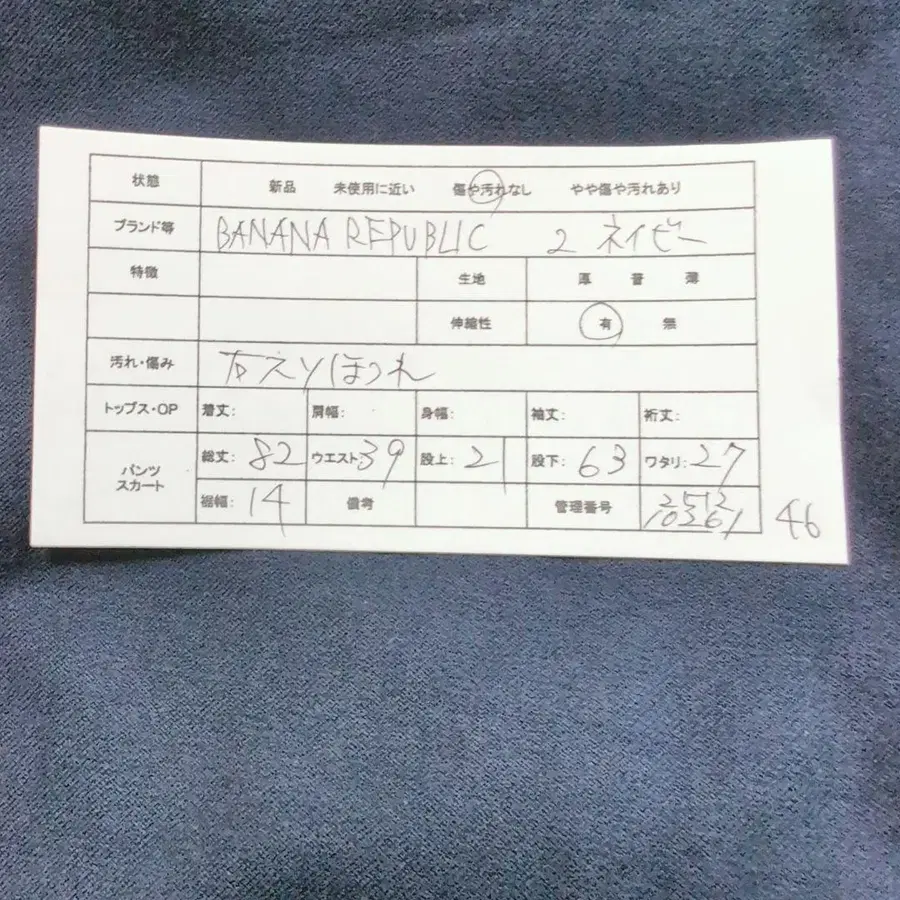 状態 新品 未使用に近い 傷や汚れなし やや傷や汚れあり
ブランド等 BANANA REPUBLIC 2 ネイビー
特徴 生地 厚 普 薄
伸縮性 有 無
汚れ・傷み ほつれ
トップス・OP 着丈: 肩幅: 身幅: 袖丈: 裄丈:
パンツ スカート 総丈: 82 ウエスト: 39 股上: 21 股下: 63 ワタリ: 27
裾幅: 14 備考 管理番号 2512
10361 46